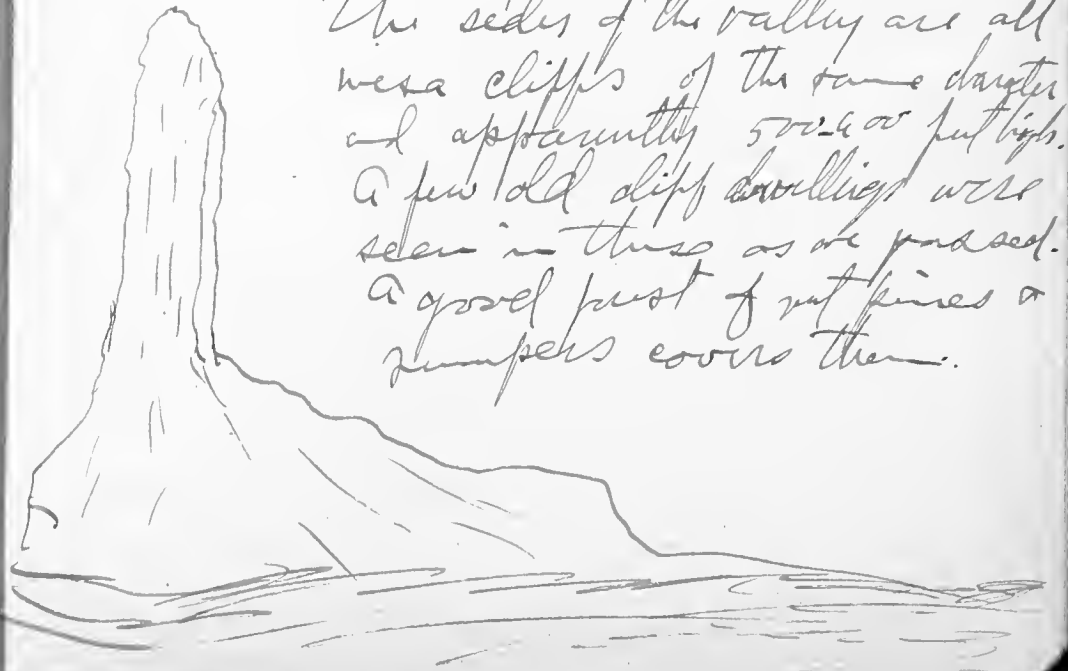 The sides of the valley are all
mesa cliffs of the same character
and apparently 500-600 feet high.
A few old cliff dwellings were
seen in these as we passed.
A good forest of nut pines &
junipers covers them.